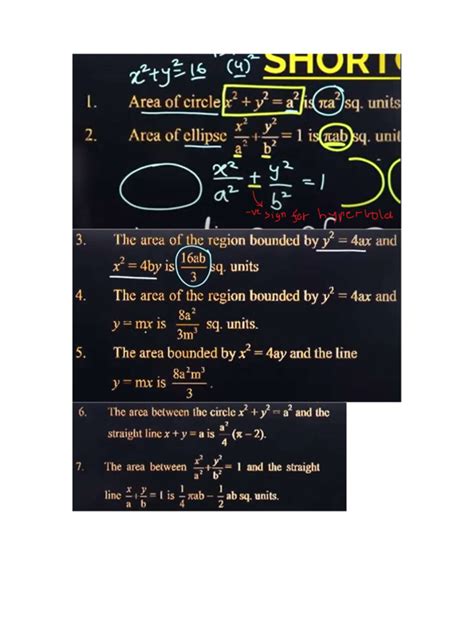 x²+y²=16 (4)² SHORT
1. Area of circle x² + y² = a² is πa² sq. units
2. Area of ellipse x²/a² + y²/b² = 1 is πab sq. unit
x²/a² + y²/b² = 1
-ve sign for hyperbola
3. The area of the region bounded by y² = 4ax and
x² = 4by is 16ab/3 sq. units
4. The area of the region bounded by y² = 4ax and
y = mx is 8a²/3m³ sq. units.
5. The area bounded by x² = 4ay and the line
y = mx is 8a²m³/3 .
6. The area between the circle x² + y² = a² and the
straight line x + y = a is a²/4 (π – 2).
7. The area between x²/a² + y²/b² = 1 and the straight
line x/a + y/b = 1 is 1/4 πab – 1/2 ab sq. units.